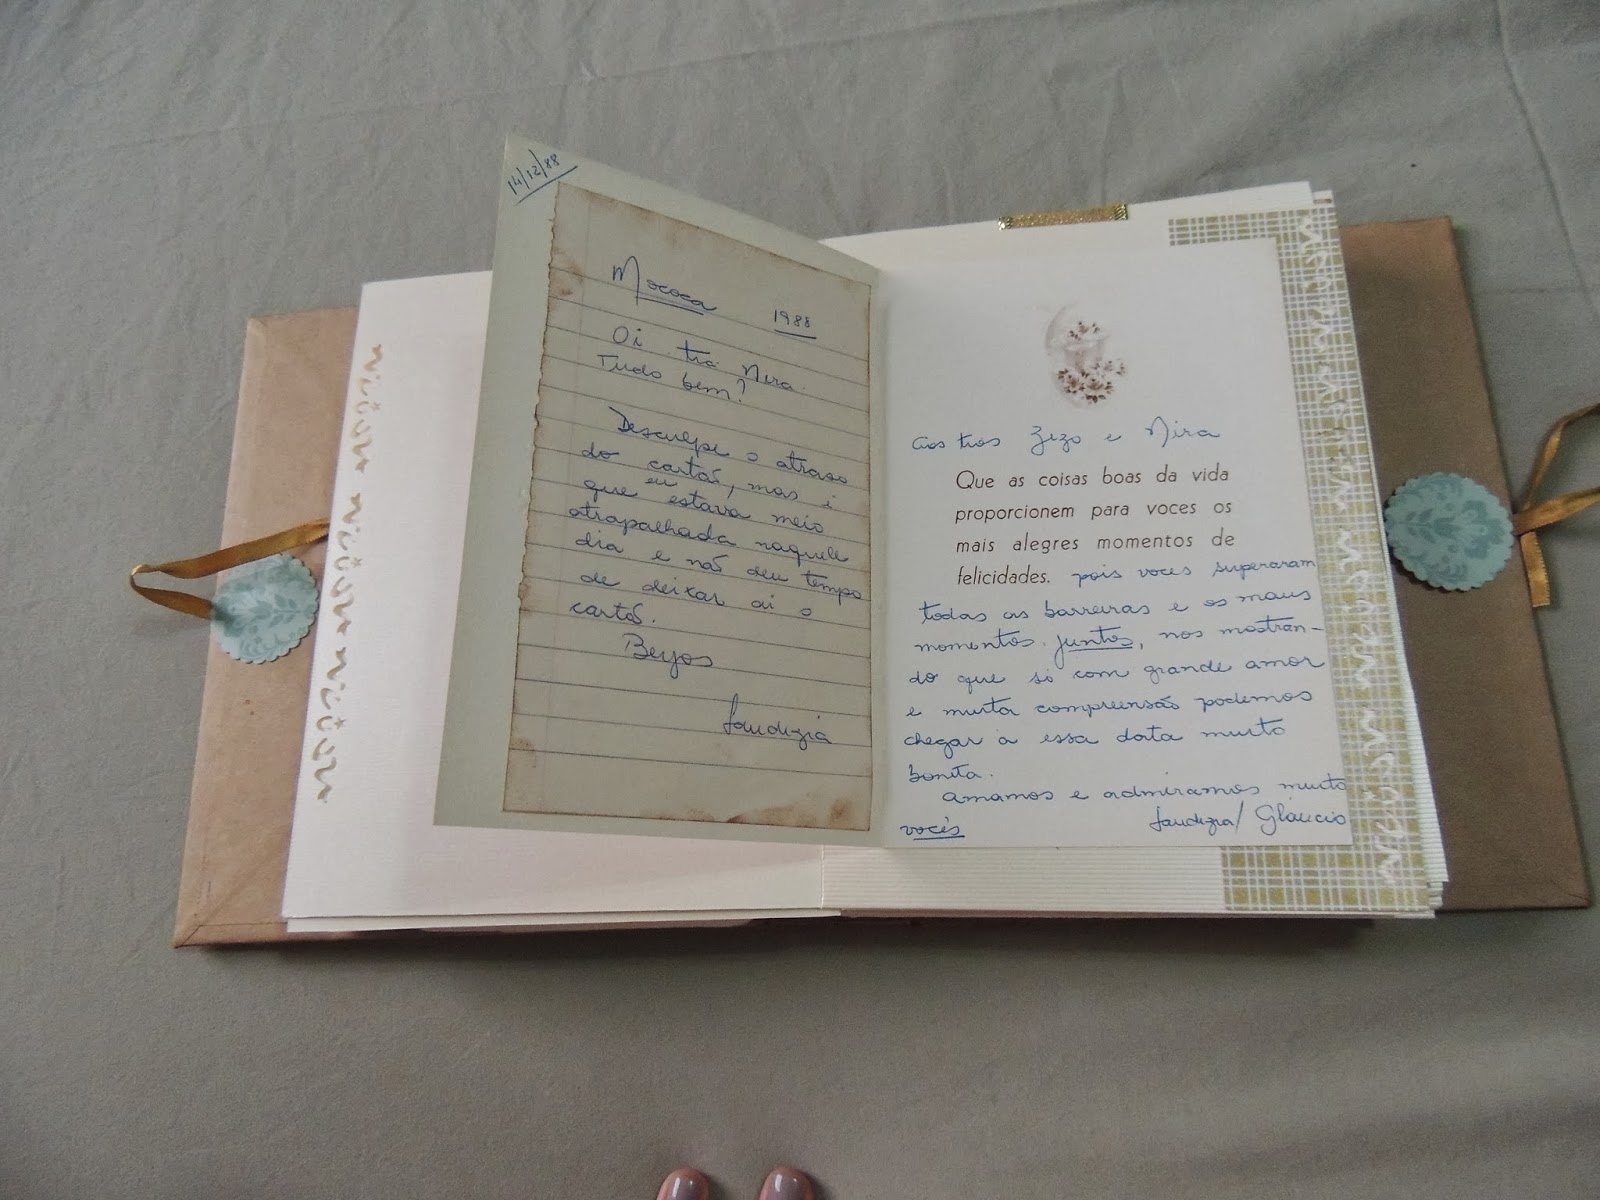 14/12/88
Mococa 1988
Oi tia Nira.
Tudo bem?
Desculpe o atraso
do cartão, mas é
que eu estava meio
atrapalhada naquele
dia e não deu tempo
de deixar aí o
cartão.
Beijos
Laudizia
Aos tios Zezo e Nira
Que as coisas boas da vida
proporcionem para voces os
mais alegres momentos de
felicidades. pois voces superaram
todas as barreiras e os maus
momentos juntos, nos mostran-
do que só com grande amor
e muita compreensão podemos
chegar à essa data muito
bonita.
Amamos e admiramos muito
vocês Laudizia/ Gláucio